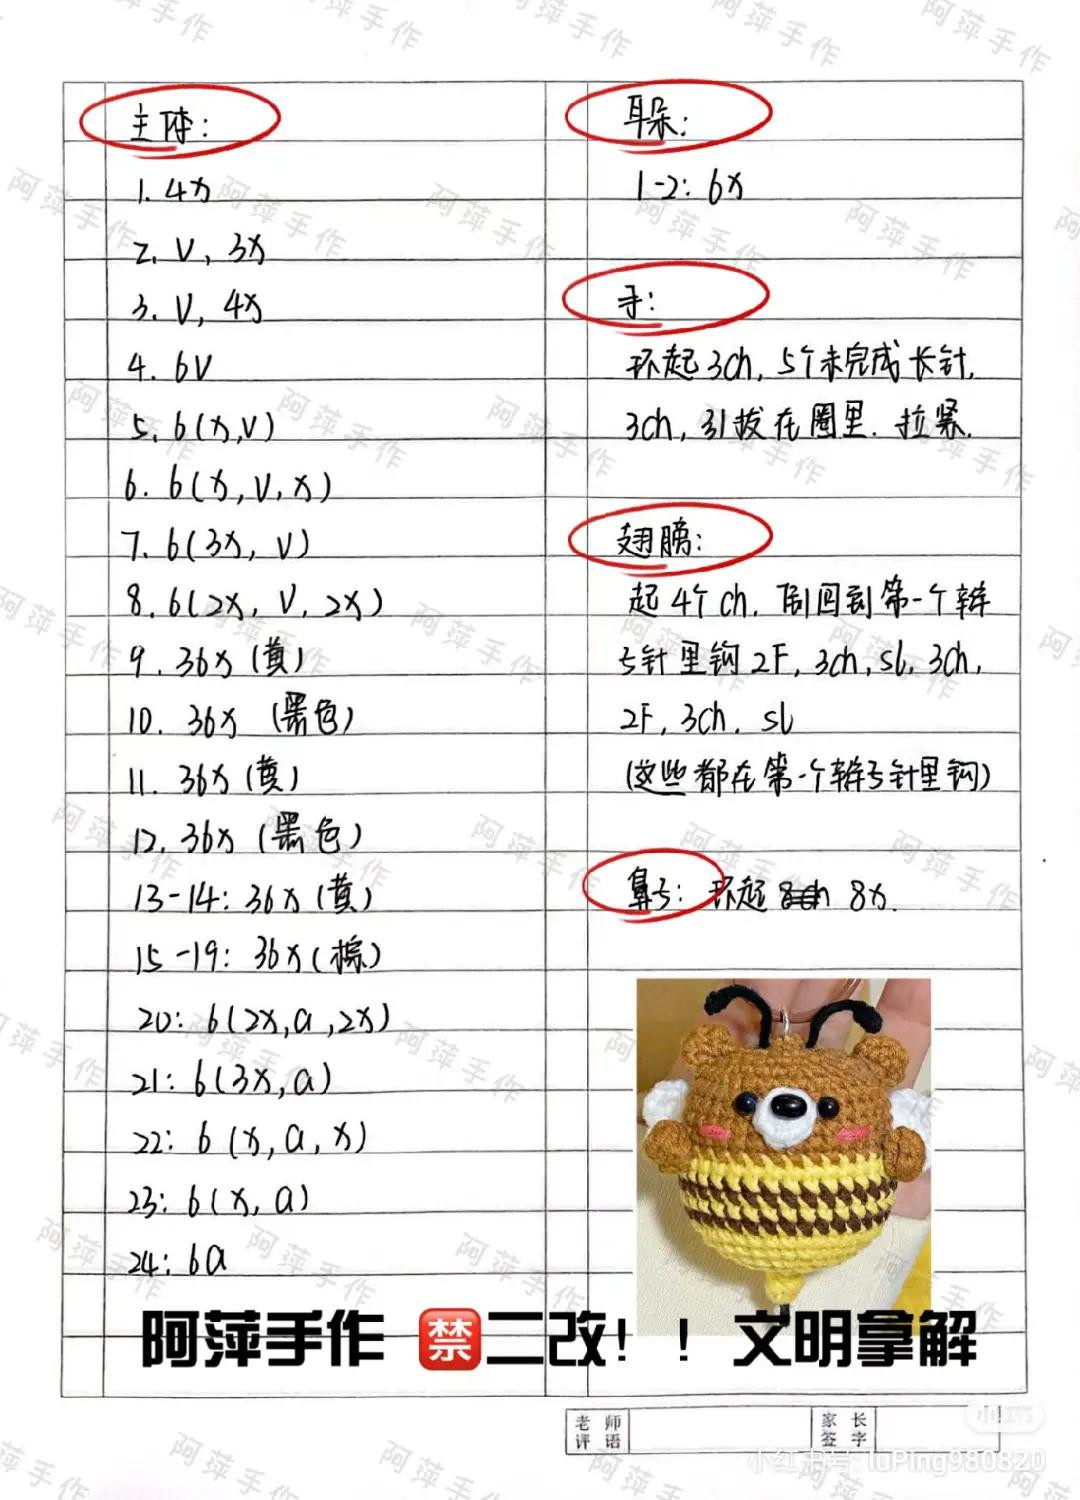 主体：
1. 4x
2. V, 3x
3. V, 4x
4. 6V
5. 6(x,V)
6. 6(x,V,x)
7. 6(3x, V)
8. 6(2x, V, 2x)
9. 36x (黄)
10. 36x (黑色)
11. 36x (黄)
12. 36x (黑色)
13-14: 36x (黄)
15-19: 36x (棕)
20: 6(2x,a,2x)
21: 6(3x,a)
22: 6(x,a,x)
23: 6(x,a)
24: 6a
耳朵：
1-2: 6x
手：
环起3ch, 5个未完成长针,
3ch, 引拔在圈里. 拉紧.
翅膀：
起4个ch. 倒回到第一个辫
子针里钩2F, 3ch, sl, 3ch,
2F, 3ch. sl
(这些都在第一个辫子针里钩)
鼻子：环起8ch 8x.
阿萍手作 禁二改！！文明拿图
老师评语
家长签字
小红书
小红书号: luPing980820
阿萍手作